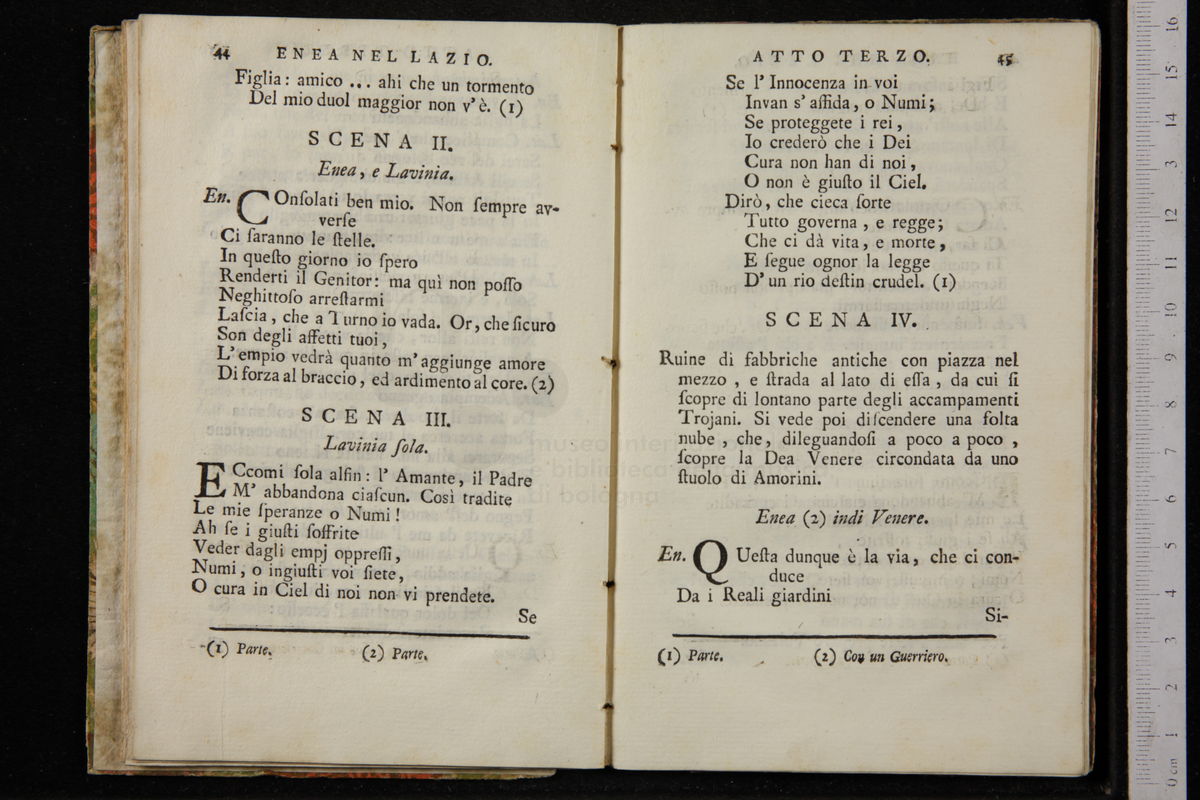 44 ENEA NEL LAZIO.
Figlia: amico ... ahi che un tormento
Del mio duol maggior non v' è. (1)
SCENA II.
Enea, e Lavinia.
En. COnſolati ben mio. Non ſempre av-
verſe
Ci ſaranno le ſtelle.
In queſto giorno io ſpero
Renderti il Genitor: ma quì non poſſo
Neghittoſo arreſtarmi
Laſcia, che a Turno io vada. Or, che ſicuro
Son degli affetti tuoi,
L' empio vedrà quanto m' aggiunge amore
Di forza al braccio, ed ardimento al core. (2)
SCENA III.
Lavinia ſola.
ECcomi ſola alfin: l' Amante, il Padre
M' abbandona ciaſcun. Così tradite
Le mie ſperanze o Numi!
Ah ſe i giuſti ſoffrite
Veder dagli empj oppreſſi,
Numi, o ingiuſti voi ſiete,
O cura in Ciel di noi non vi prendete.
Se
(1) Parte. (2) Parte.
ATTO TERZO. 45
Se l' Innocenza in voi
Invan s' affida, o Numi;
Se proteggete i rei,
Io crederò che i Dei
Cura non han di noi,
O non è giuſto il Ciel.
Dirò, che cieca ſorte
Tutto governa, e regge;
Che ci dà vita, e morte,
E ſegue ognor la legge
D' un rio deſtin crudel. (1)
SCENA IV.
Ruine di fabbriche antiche con piazza nel
mezzo, e ſtrada al lato di eſſa, da cui ſi
ſcopre di lontano parte degli accampamenti
Trojani. Si vede poi diſcendere una folta
nube, che, dileguandoſi a poco a poco,
ſcopre la Dea Venere circondata da uno
ſtuolo di Amorini.
Enea (2) indi Venere.
En. QUeſta dunque è la via, che ci con-
duce
Da i Reali giardini
Si-
(1) Parte. (2) Con un Guerriero.
0 cm 1 2 3 4 5 6 7 8 9 10 11 12 13 14 15 16